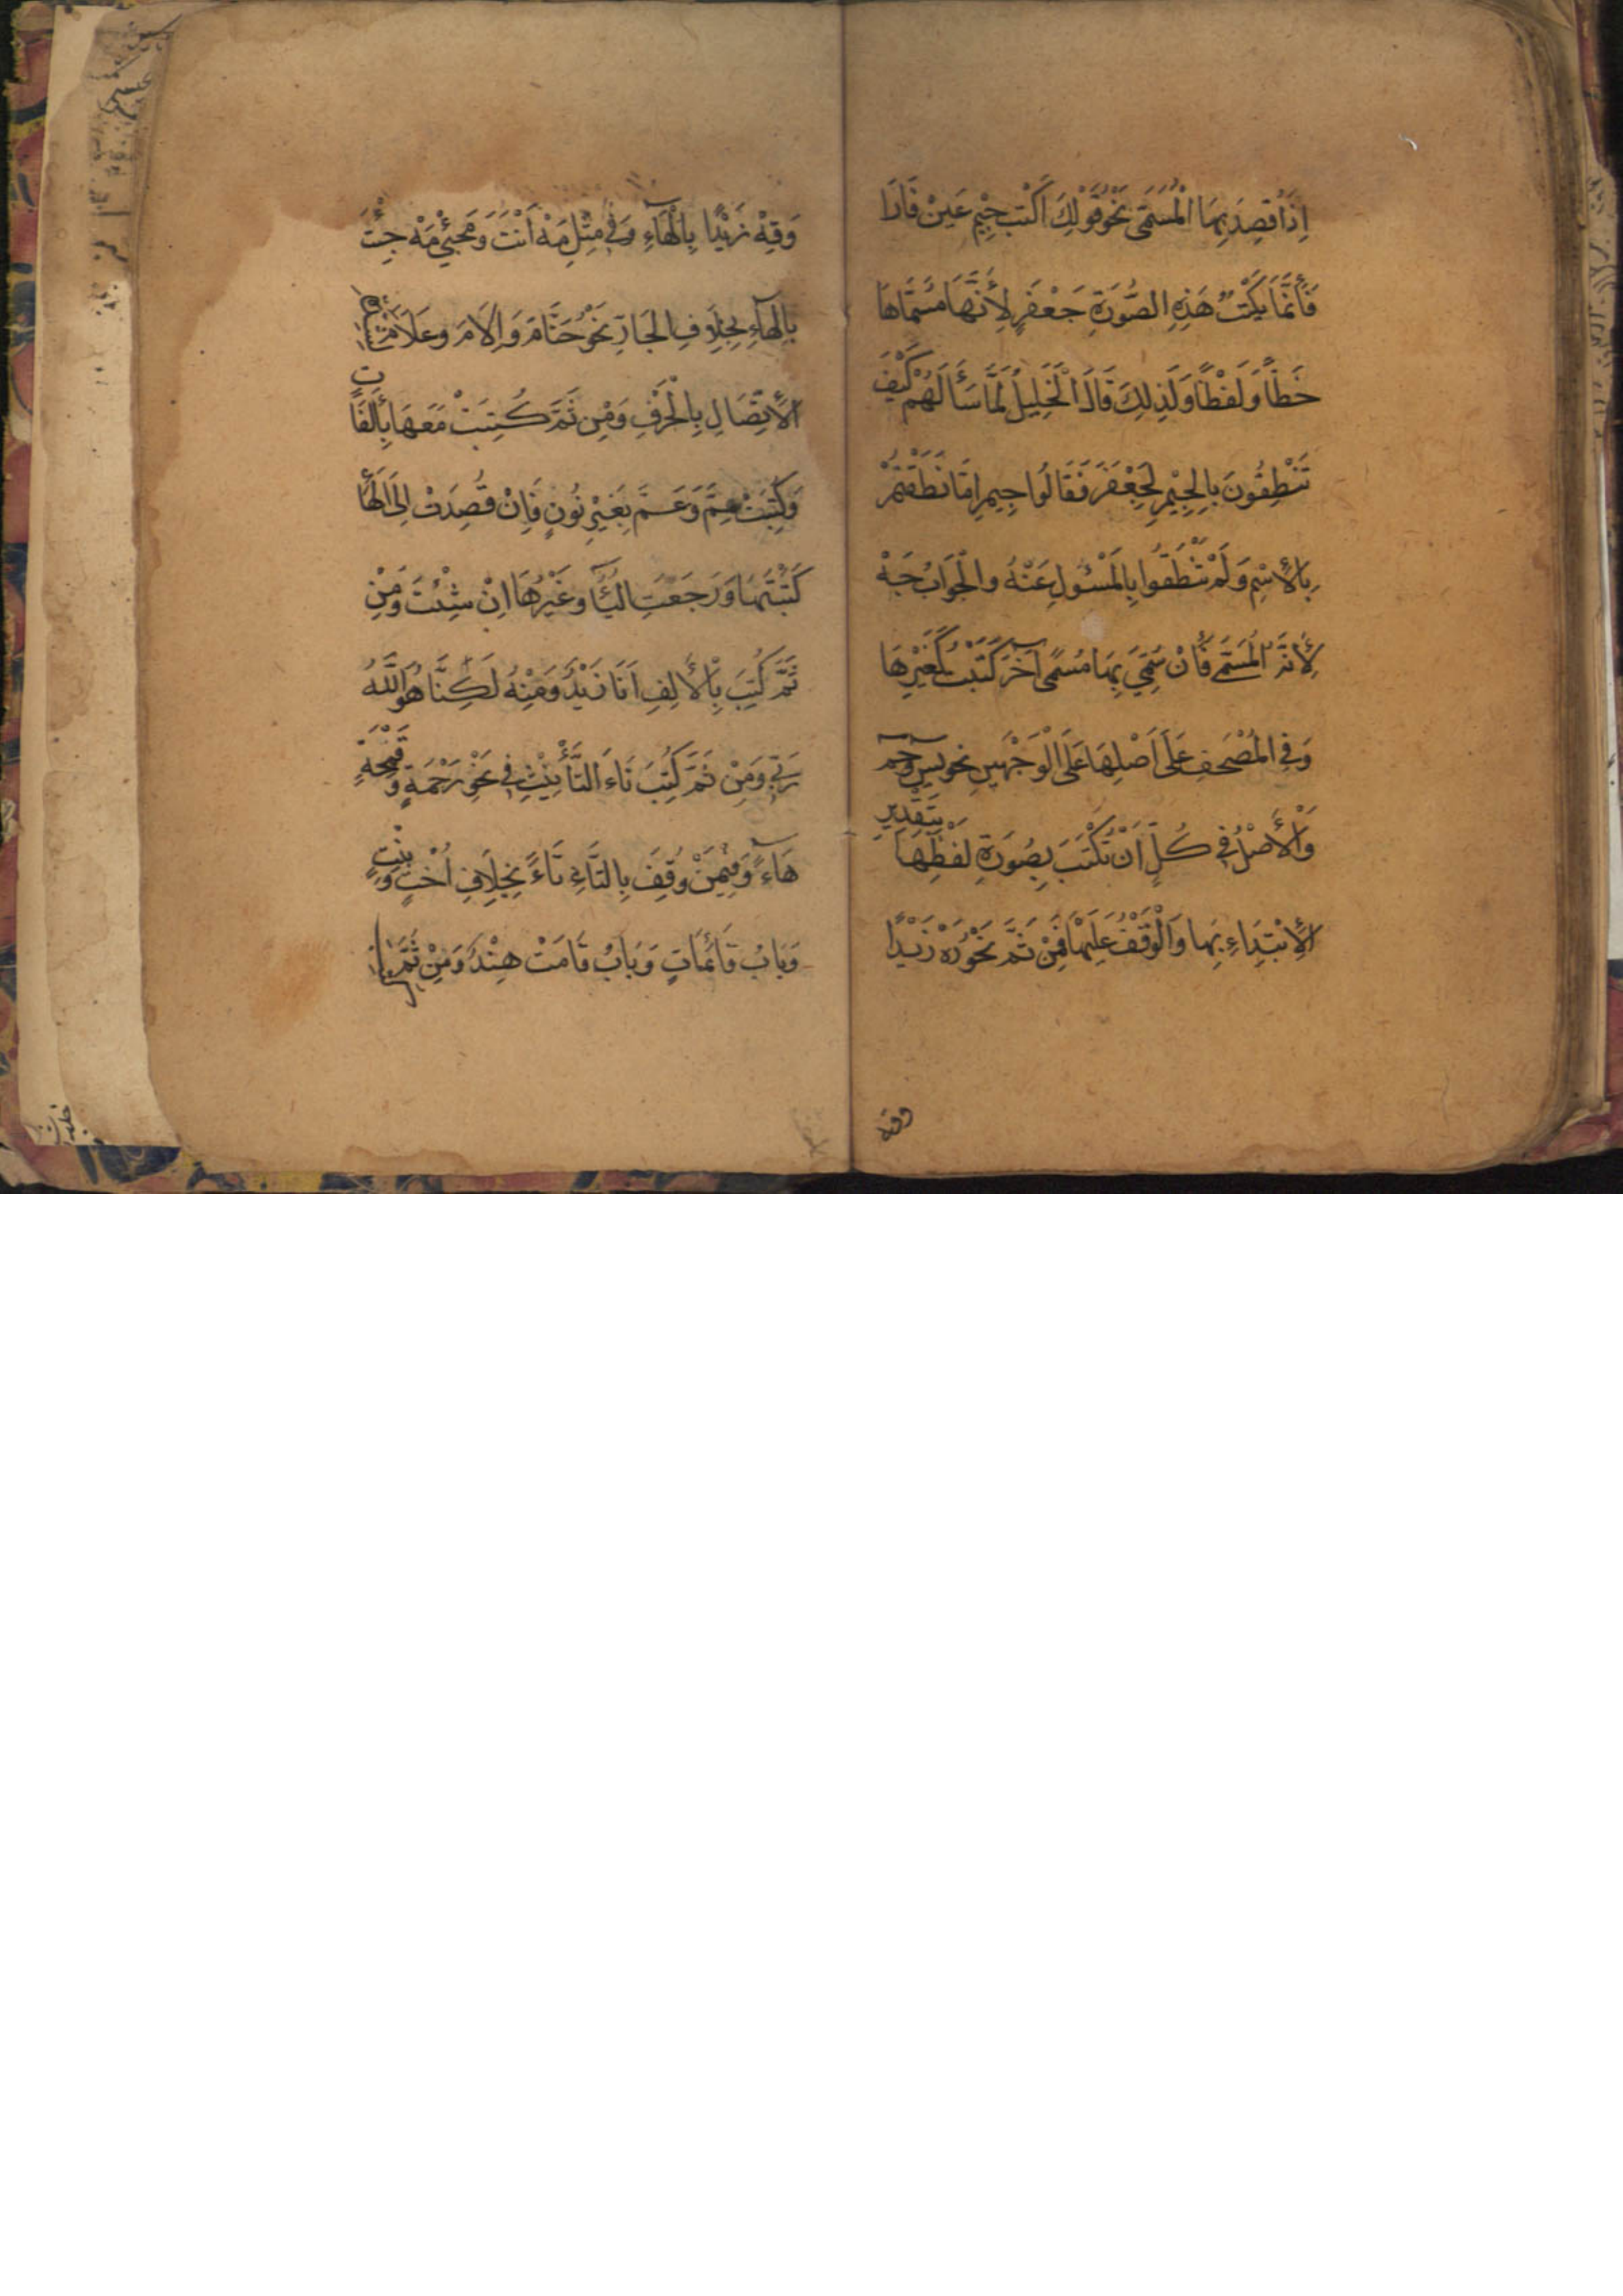 اِذَا قُصِدَ بِهَا الْمُسَمَّى نَحْوُ قَوْلِكَ اكْتُبْ جِيْم عَيْنْ فَارَا
فَأِنَّمَا يُكْتَبُ هَذِهِ الصُّوْرَةِ جَعْفَرٍ لِأَنَّهَا مُسَمَّاهَا
خَطًّا وَلَفْظًا وَلِذلِكَ قَالَ الْخَلِيْلُ لَمَّا سَأَلَهُمْ كَيْفَ
تَنْطِقُونَ بِالْجِيْمِ لِجَعْفَرَ فَقَالُوا جِيم اِنَّمَا نَطَقْتُمْ
بِالْأِسْمِ وَلَمْ تَنْطَقُوا بِالْمَسْئُولِ عَنْهُ والْجَوَابُ جَهْ
لِأَنَّهُ الْمُسَمَّى فَأِنْ سُمِّيَ بِهَا مُسَمًّى آخَرَ كُتِبَتْ كَغَيْرِهَا
وَفِي الْمُصْحَفِ عَلَى اَصْلِهَا عَلَى الْوَجْهَيْنِ نحو يس وحم
وَالْأَصْلُ فِي كُلٍّ اَنْ تُكْتَبَ بِصُورَةِ لَفْظِهَا بِتَقْدِيرِ
الْأِبْتِدَاءِ بِهَا وَالْوَقْفُ عَلَيْهَا فَمِنْ ثَمَّ نَحْوُ رَهْ زَيْدًا
وقه
وَقِهْ زَيْدًا بِالْهَاءِ وَفِي مِثْلِ مَهْ اَنْتَ وَمَجِئَ مَهْ جِئْتَ
بِالْهَاءِ بِخِلَافِ الْجَارِّ نَحْوُ حَتَّامَ وَاِلَامَ وعَلَامَ
الْأِتِّصَالِ بِالْحَرْفِ وَمِنْ ثَمَّ كُتِبَتْ مَعَهَا بِأَلِفَاتٍ
وَكُتِبَتْ مِمَّ وَعَمَّ بِغَيْرِ نُونٍ فَاِنْ قُصِدَتْ اِلَى الْهَاءِ
كَتَبْتَهَا وَرَجَعْتِ الْيَاءَ وَغَيْرُهَا اِنْ شِئْتَ وَمِنْ
ثَمَّ كُتِبَ بِالْأَلِفِ اَنَا زَيْدٌ وَمِنْهُ لَكِنَّا هُوَ اللَّهُ
رَبِّي وَمِنْ ثَمَّ كُتِبَ تَاءَ التَّأْنِيْثِ فِي نَحْوِ رَحْمَةٍ وَقَمْحَةٍ
هَاءً وَفِيمَنْ وَقِفَ بِالتَّاءِ تَاءً بِخِلَافِ اُخْتٍ وَبِنْتٍ
وَبَابُ قَائِمَاتٍ وَبَابُ قَامَتْ هِنْدٌ وَمِنْ ثَمَّ